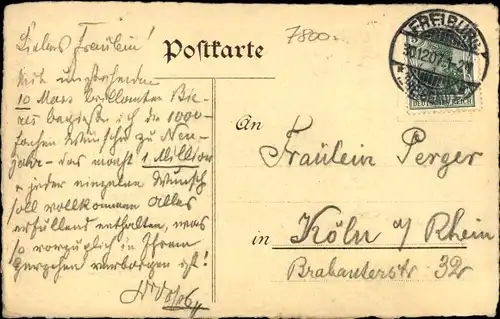 Postkarte
7800.-
FREIBURG
30.12.07
DEUTSCHES REICH
Liebes Fräulein!
Mit umstehenden
10 Mass brillanten Bie-
res begiesse ich die 1000-
fachen Wünsche zu Neu-
jahr - das macht 1 Million
jeder einzelne Wunsch
soll vollkommen Alles
erfüllend enthalten, was
so vorzüglich in Ihrem
Herzchen verborgen ist!
An
Fräulein Perger
in Köln a/Rhein
Brabanterstr 32